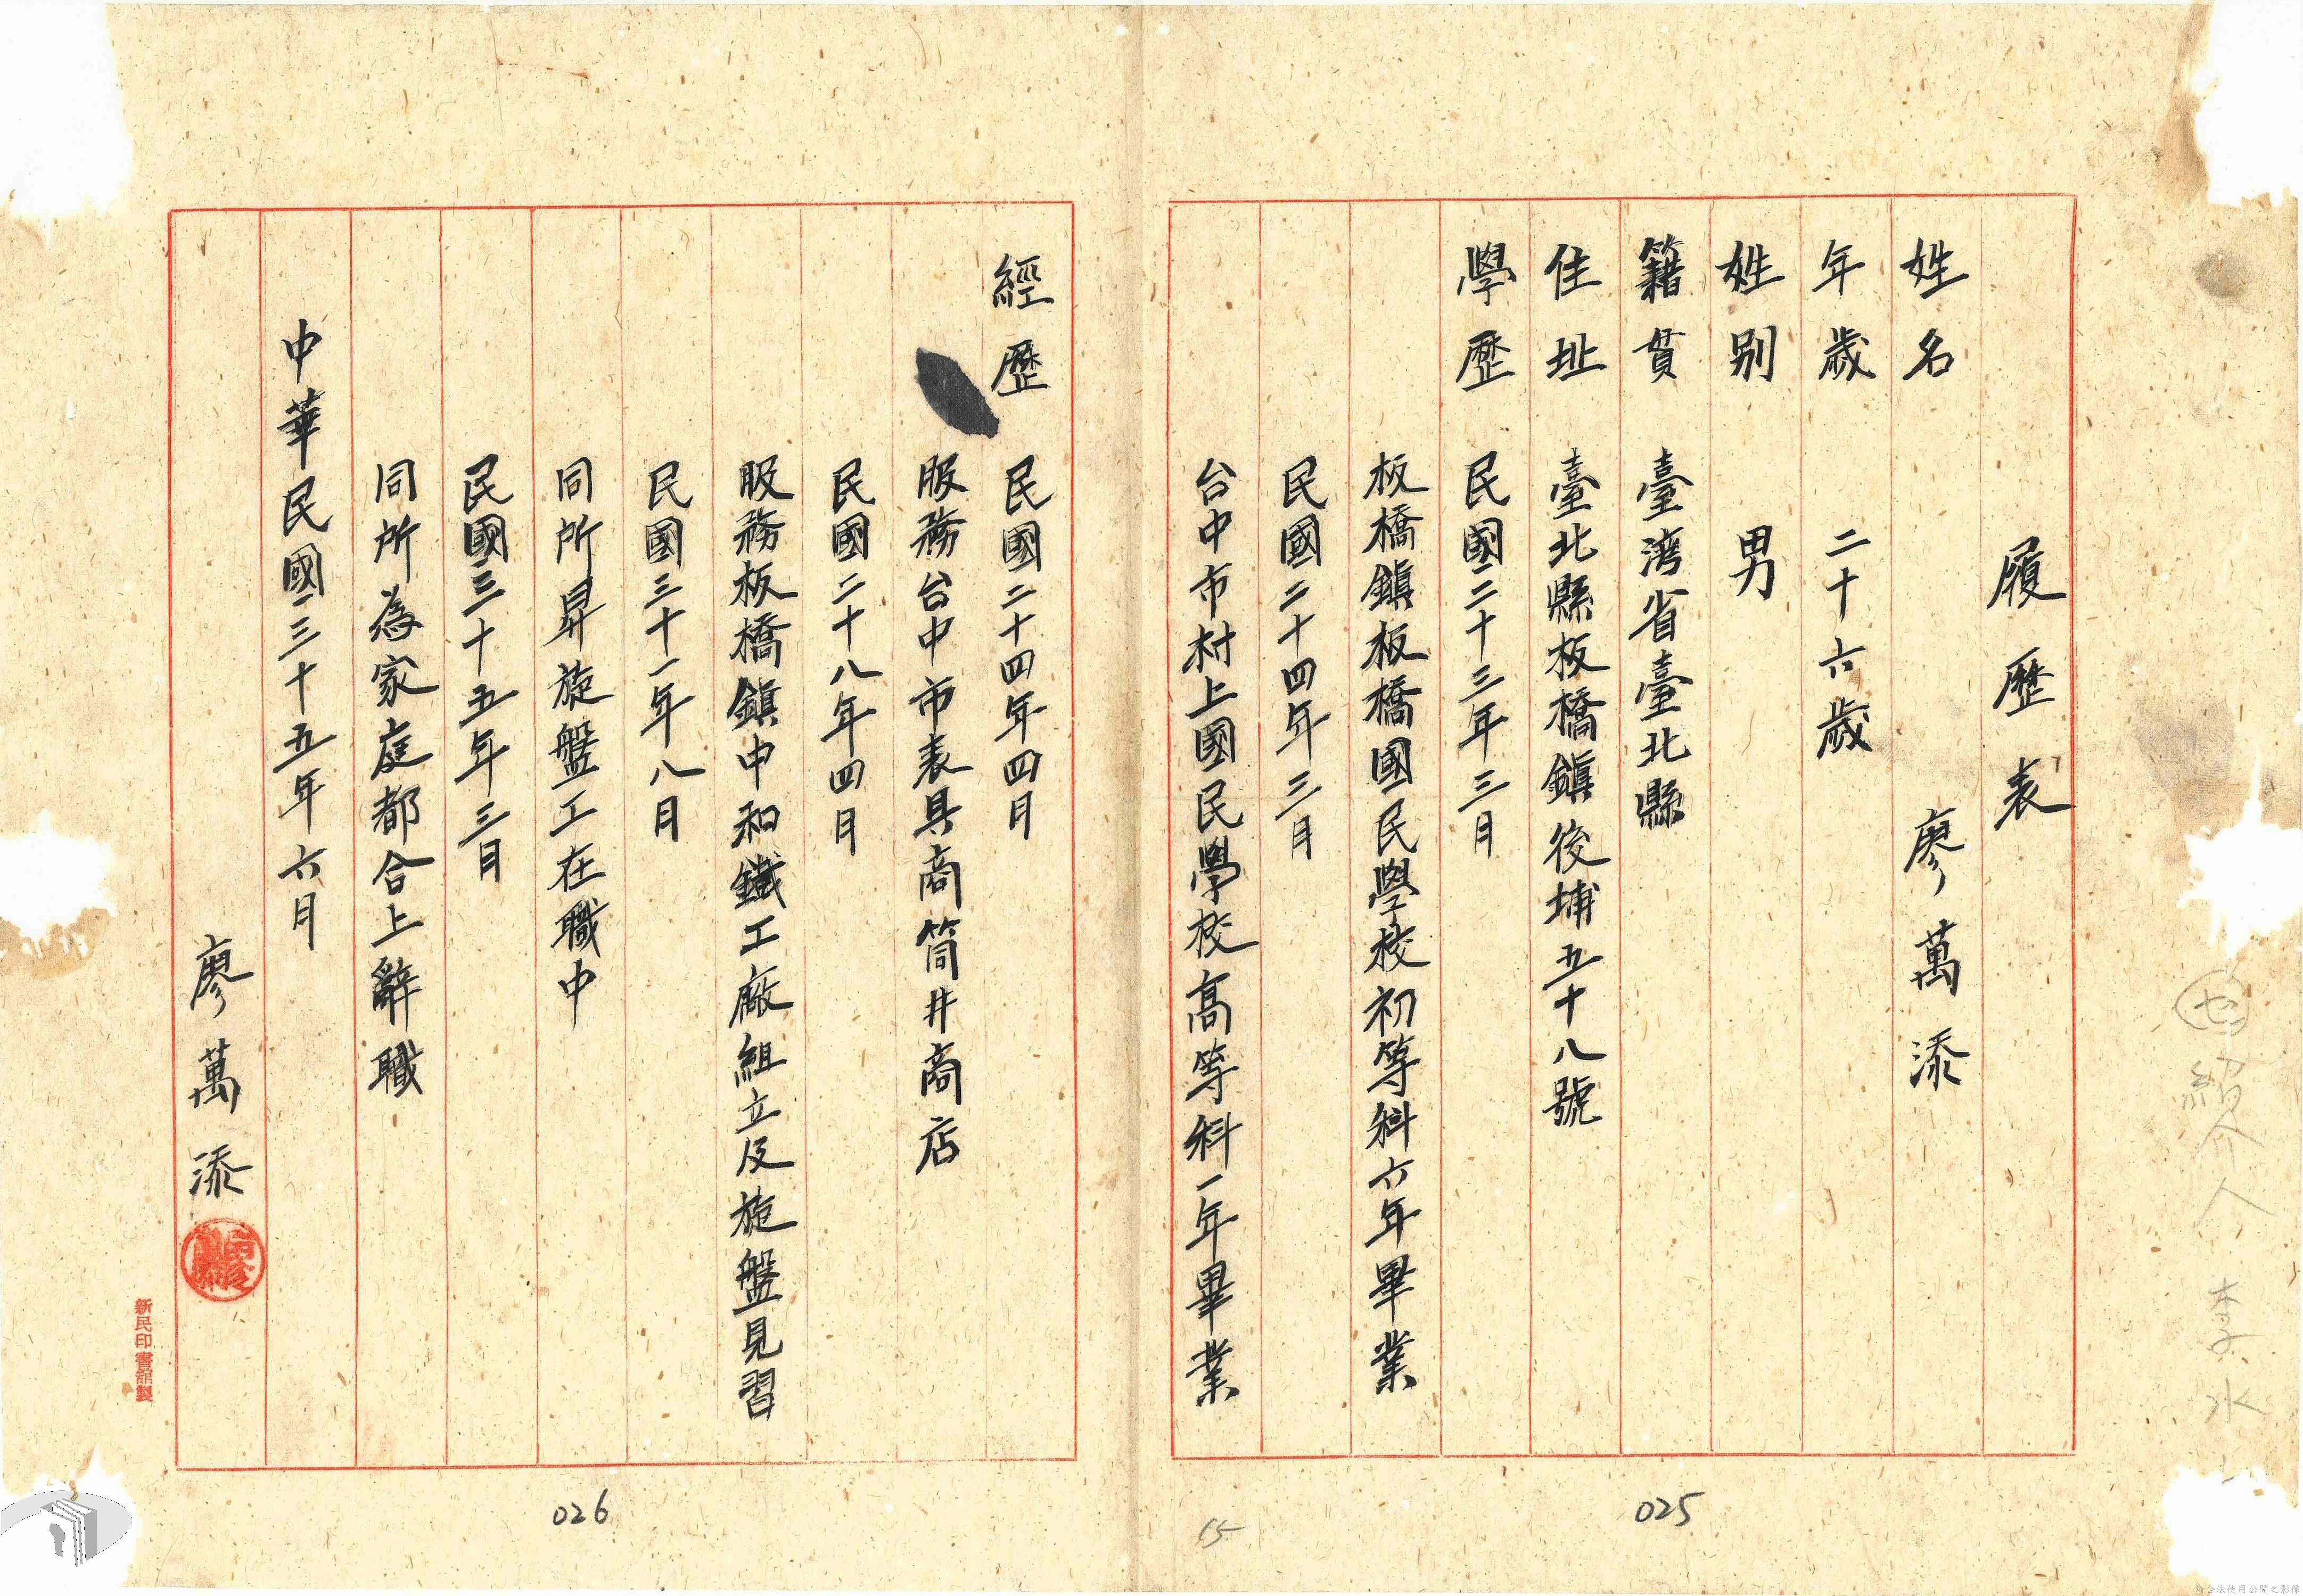 履歷表
姓名 廖萬添
年歲 二十六歲
姓别 男
籍貫 臺湾省臺北縣
住址 臺北縣板橋鎮後埔五十八號
學歷 民國二十三年三月
板橋鎮板橋國民學校初等科六年畢業
民國二十四年三月
台中市村上國民學校高等科一年畢業
經歷 民國二十四年四月
服務台中市表具商筒井商店
民國二十八年四月
服務板橋鎮中和鐵工廠組立及旋盤見習
民國三十一年八月
同所昇旋盤工在職中
民國三十五年三月
同所為家庭都合上辭職
中華民國三十五年六月
廖萬添
新民印書館製
紹介人 李水
025
15
026